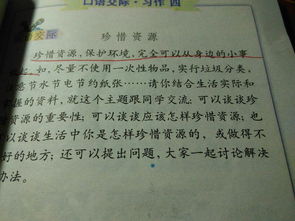 口语交际·习作 四
交际
珍惜资源
珍惜资源，保护环境，完全可以从身边的小事
起。如，尽量不使用一次性物品，实行垃圾分类，
节水节电节约纸张……请你结合生活实际和
的资料，就这个主题跟同学交流：可以谈谈珍
资源的重要性；可以谈谈应该怎样珍惜资源；也
以谈谈生活中你是怎样珍惜资源的，或做得不
好的地方；还可以提出问题，大家一起讨论解决
办法。